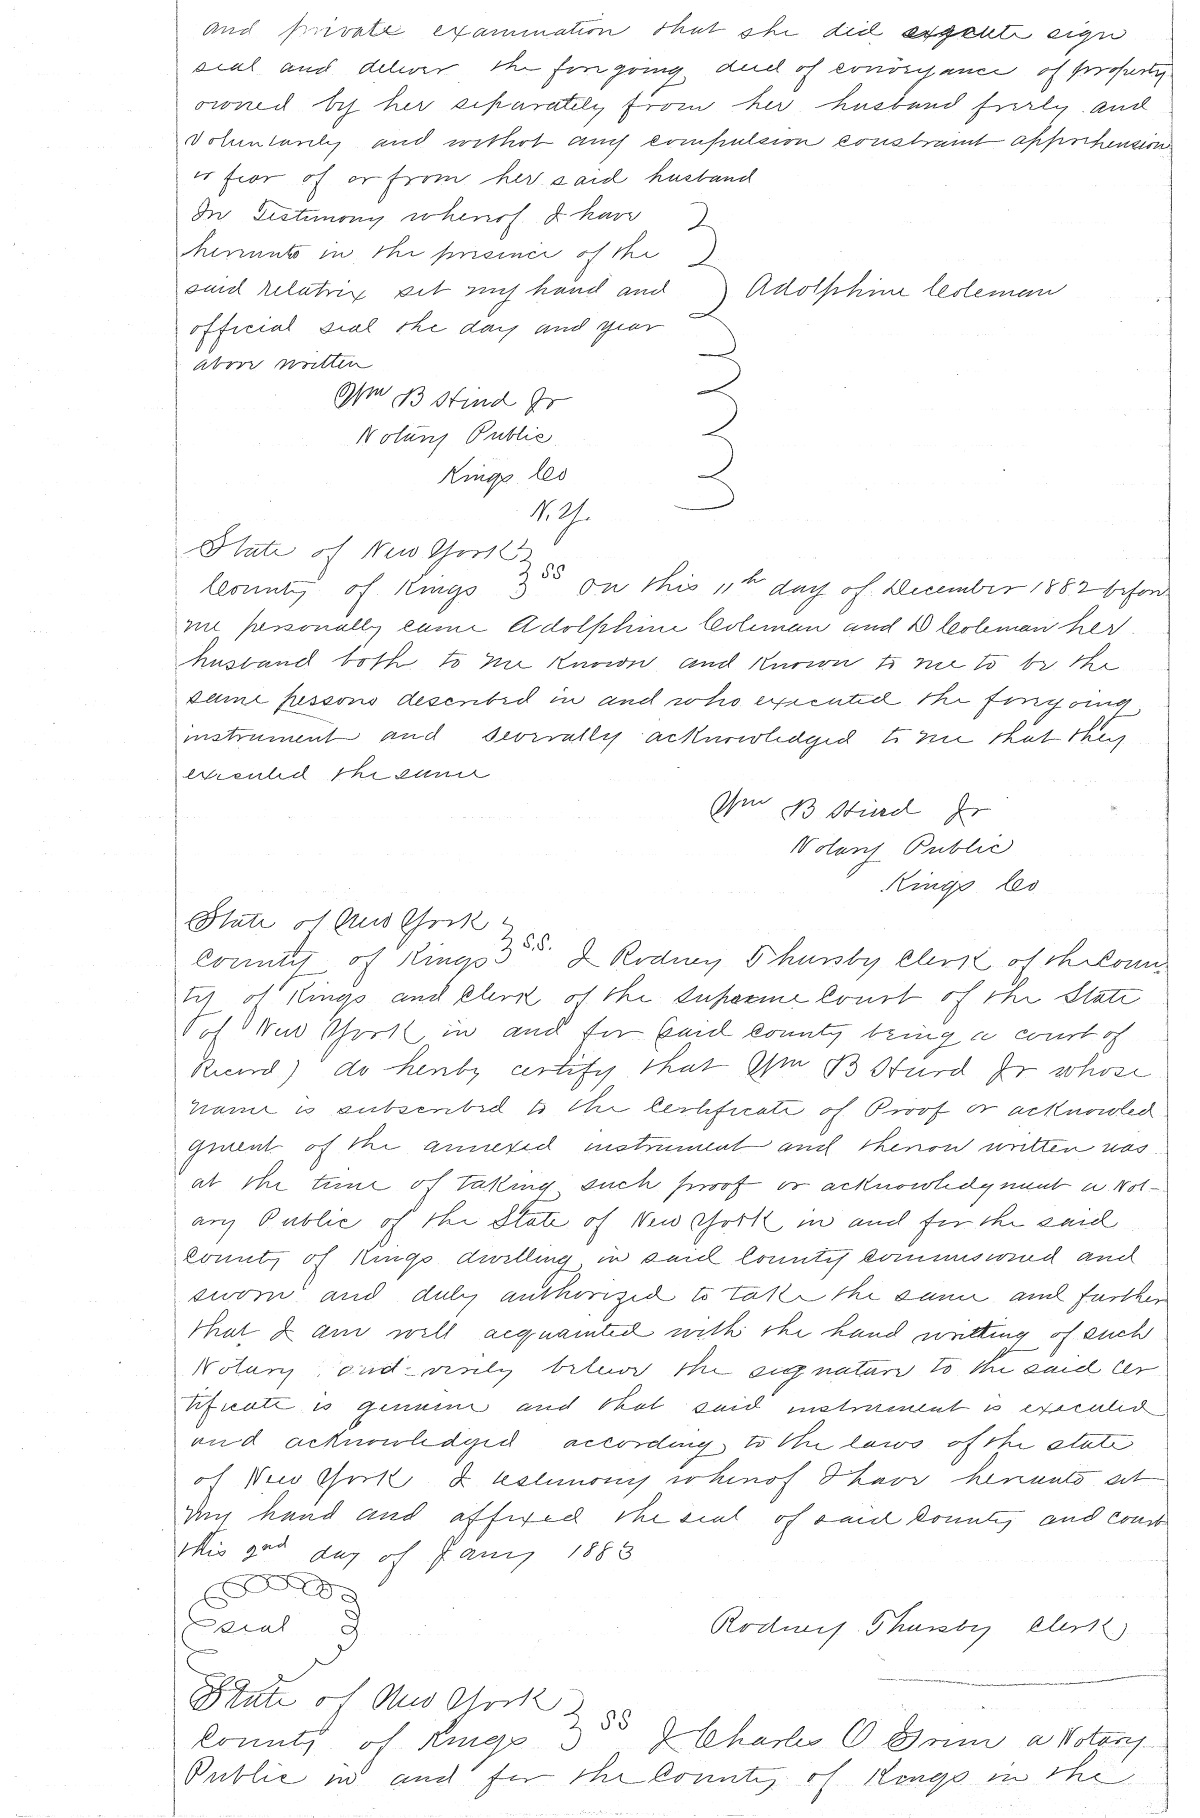 and private examination that she did execute sign
seal and deliver the foregoing deed of conveyance of property
owned by her separately from her husband freely and
Voluntarily and withot any compulsion constraint apprehension
or fear of or from her said husband
In Testimony whereof I have
hereunto in the presence of the
said relatrix set my hand and Adolphine Coleman
official seal the day and year
above written
Wm B Hurd Jr
Notary Public
Kings Co
N.Y.
State of New York
County of Kings ss On this 11th day of December 1882 before
me personally came Adolphine Coleman and D Coleman her
husband both to me known and known to me to be the
same persons described in and who executed the foregoing
instrument and severally acknowledged to me that they
executed the same
Wm B Hurd Jr
Notary Public
Kings Co
State of New York
County of Kings S.S. I Rodney Thursby Clerk of the Coun
ty of Kings and Clerk of the Supreme Court of the State
of New York in and for said County being a court of
Record) do hereby certify that Wm B Hurd Jr whose
name is subscribed to the Certificate of Proof or acknowled
gment of the annexed instrument and thereon written was
at the time of taking such proof or acknowledgment a Not-
ary Public of the State of New York in and for the said
County of Kings dwelling in said County commissioned and
sworn and duly authorized to take the same and further
that I am well acquainted with the hand writing of such
Notary and verily believe the signature to the said cer
tificate is genuine and that said instrument is executed
and acknowledged according to the laws of the state
of New York I testimony whereof I have hereunto set
my hand and affixed the seal of said County and court
this day of Jany 1883
seal Rodney Thursby Clerk
State of New York
County of Kings SS I Charles O Grim a Notary
Public in and for the County of Kings in the